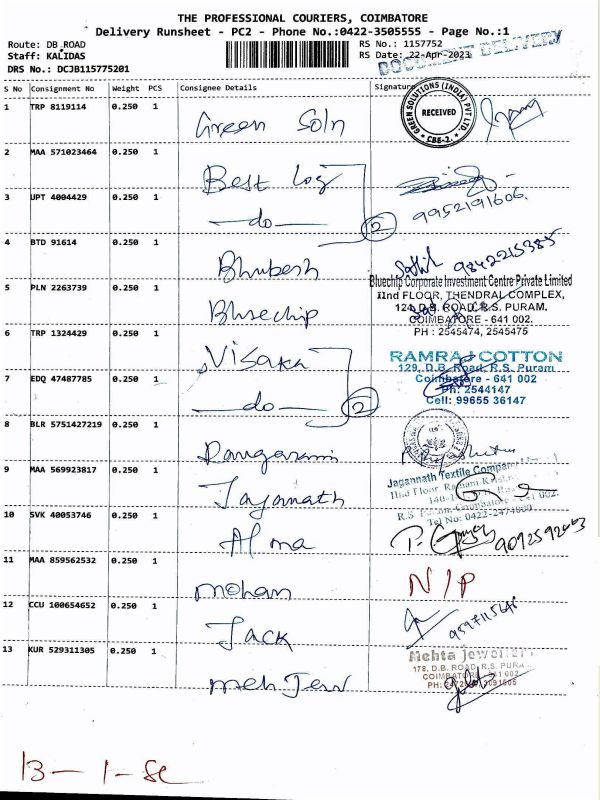 THE PROFESSIONAL COURIERS, COIMBATORE
Delivery Runsheet - PC2 - Phone No.:0422-3505555 - Page No.:1
Route: DB ROAD RS No.: 1157752
Staff: KALIDAS RS Date: 22-Apr-2023
DOCUMENT DELIVERY
DRS No.: DCJB115775201
S No Consignment No Weight PCS Consignee Details Signature
1 TRP 8119114 0.250 1 Green Soln
GREEN SOLUTIONS (INDIA) PVT LTD. RECEIVED CBE-2.
2 MAA 571023464 0.250 1 Best Log
3 UPT 4004429 0.250 1 —do— 2 9952191606
4 BTD 91614 0.250 1 Bhubesh 9842215385
5 PLN 2263739 0.250 1 Bluechip
Bluechip Corporate Investment Centre Private Limited
IInd FLOOR, THENDRAL COMPLEX,
124, D.B. ROAD, R.S. PURAM,
COIMBATORE - 641 002.
PH : 2545474, 2545475
6 TRP 1324429 0.250 1 Visaka
RAMRAJ COTTON
129, D.B. Road, R.S. Puram
Coimbatore - 641 002
Ph: 2544147
Cell: 99655 36147
7 EDQ 47487785 0.250 1 —do— 2
8 BLR 5751427219 0.250 1 Rangasami
9 MAA 569923817 0.250 1 Jagannath
Jagannath Textile Company
IInd Floor
R.S. Puram
Tel No: 0422-2474000
10 SVK 40053746 0.250 1 Alma
11 MAA 859562532 0.250 1 mohan N/P
12 CCU 100654652 0.250 1 Jack
13 KUR 529311305 0.250 1 meh Jew
Mehta Jewellers
178, D.B. ROAD, R.S. PURAM
COIMBATORE - 641 002
13 - 1 - Se